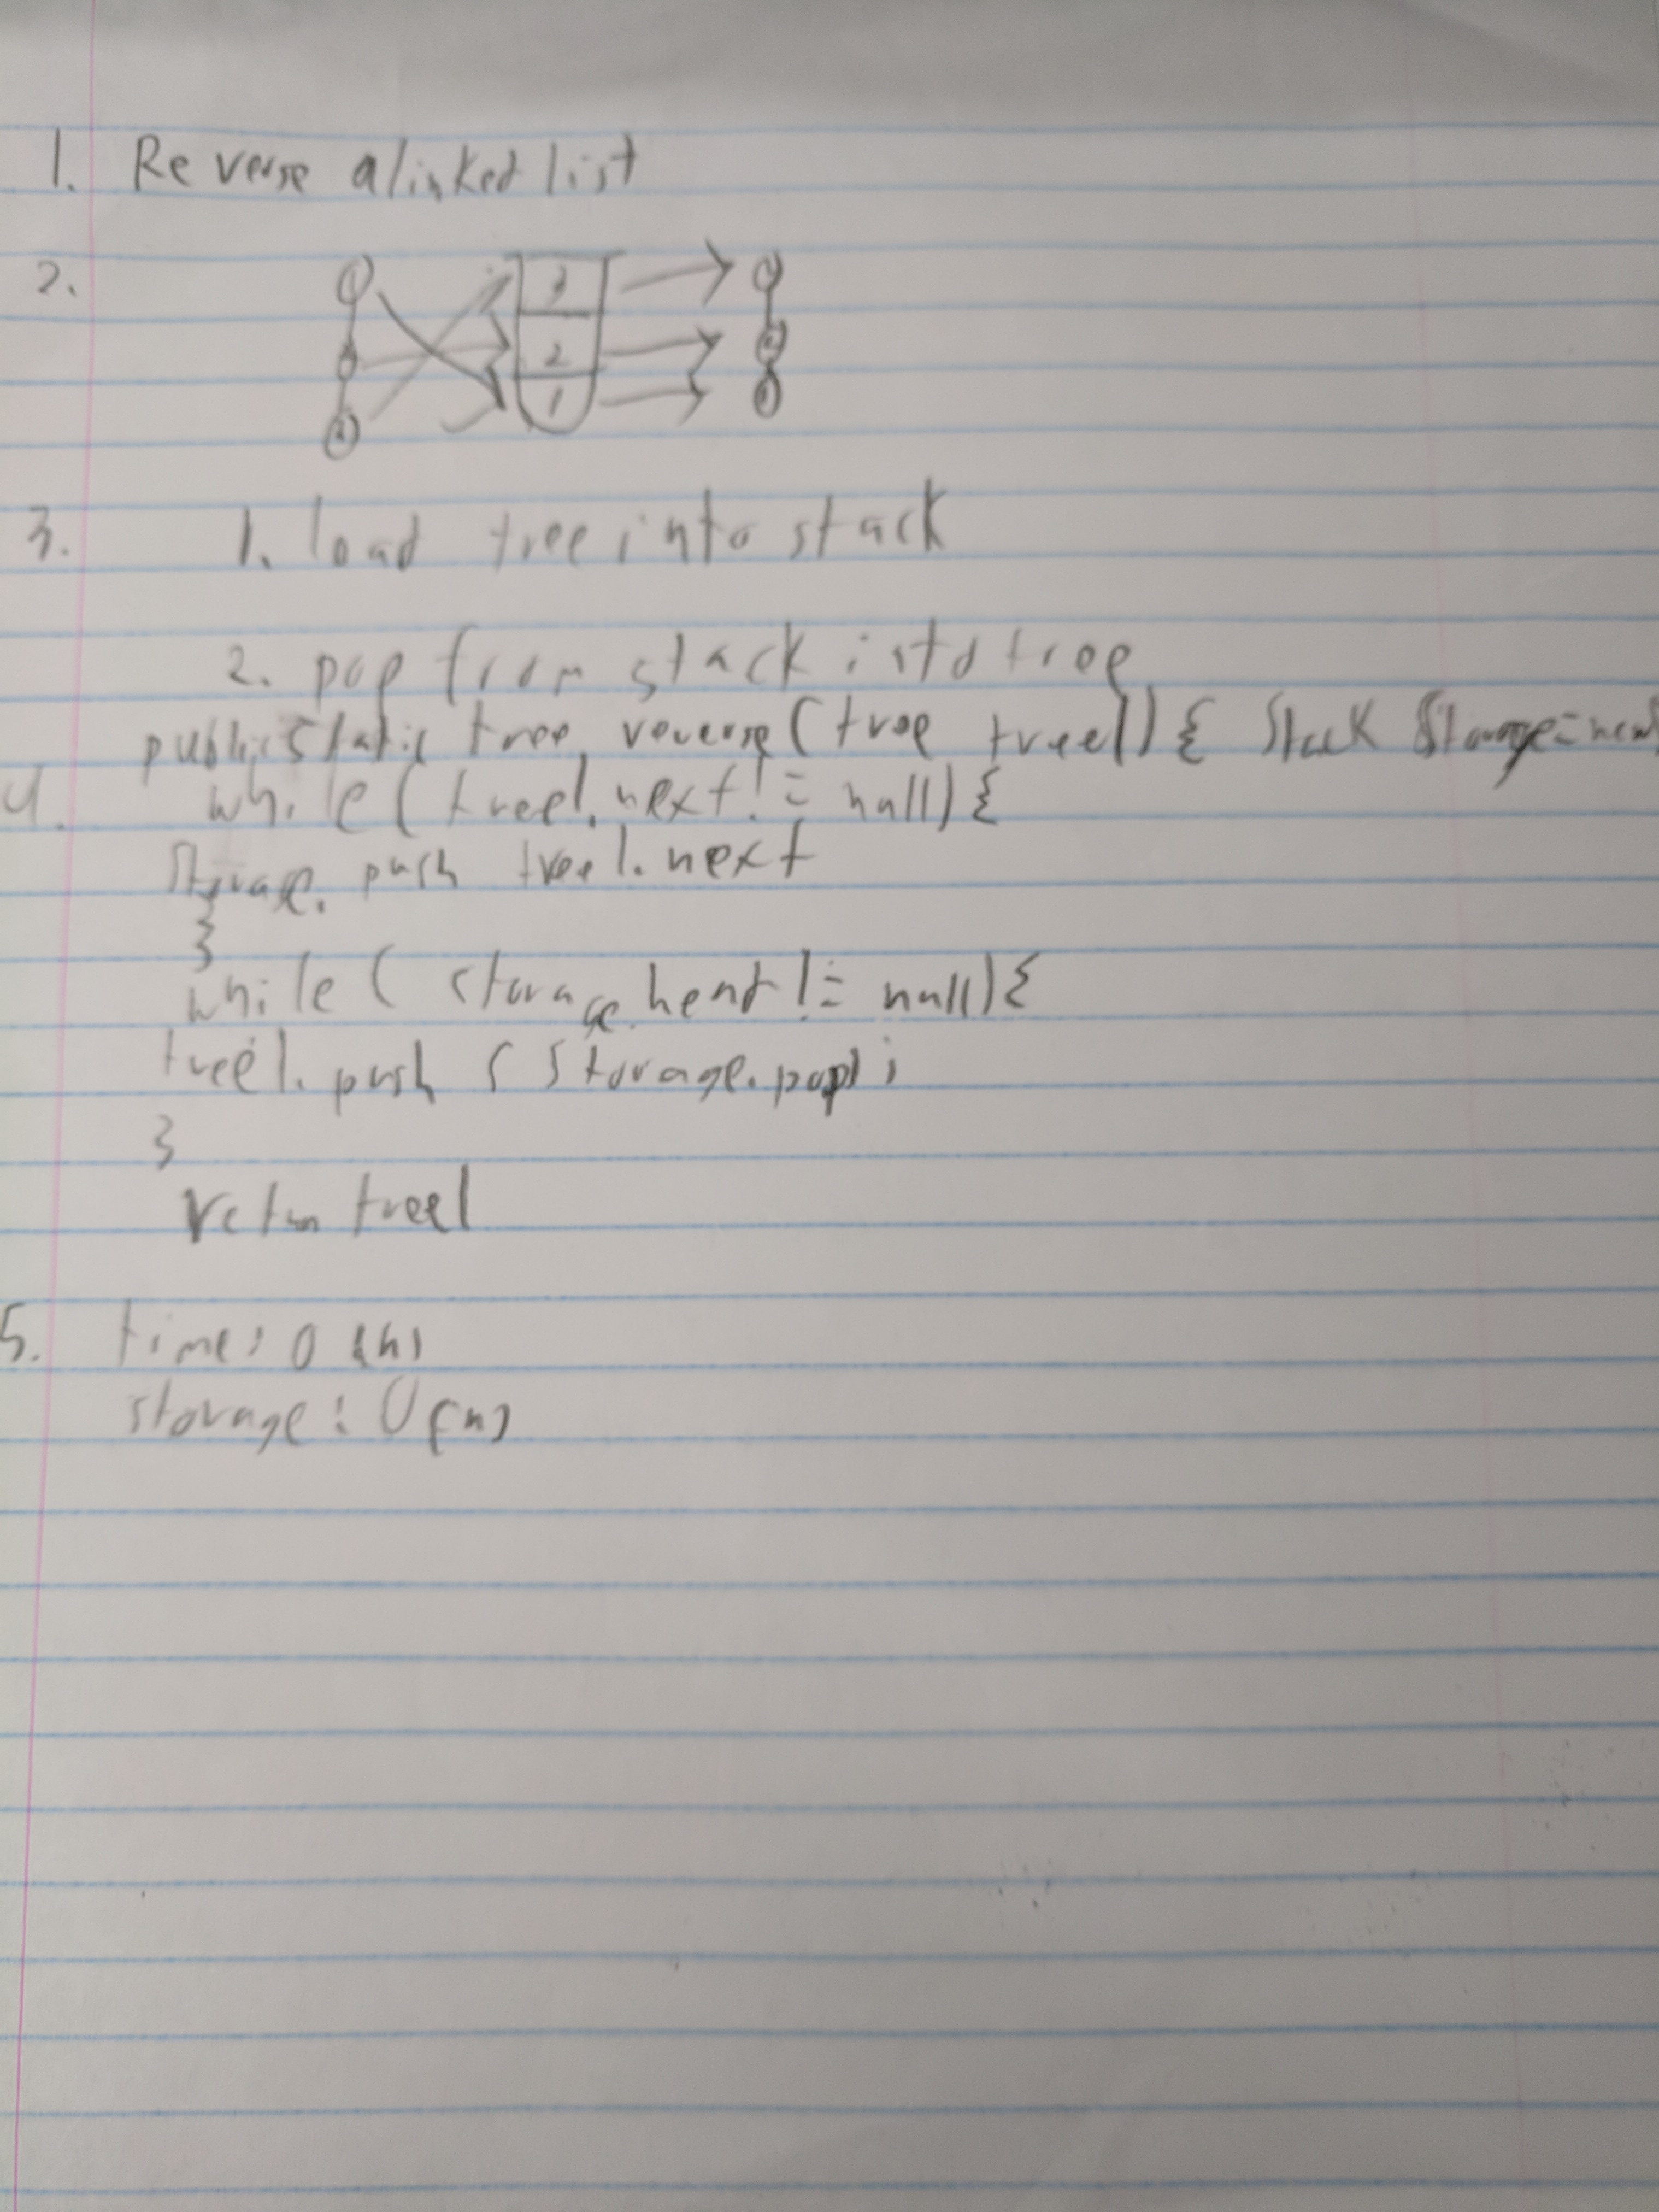 1. Reverse a linked list
2.
3
2
1
3. 1. load tree into stack
2. pop from stack isto tree
public static tree reverse (tree tree1) { Stack Storage = new
4. while (tree1.next != null) {
Storage. push tree1.next
}
while ( storage.head != null) {
tree1. push ( Storage.pop);
}
return tree1
5. time: O (n)
storage: O(n)